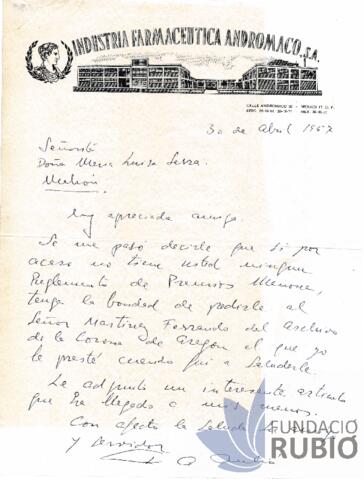 INDUSTRIA FARMACEUTICA ANDROMACO, S.A.
CALLE ANDROMACO 32 - MEXICO 17, D. F.
30 de Abril 1957
Señorita
Doña Maria Luisa Serra.
Mahón
Muy apreciada amiga.
Se me pasó decirle que si por
acaso no tiene usted ningun
Reglamento de Premios Menorca,
tenga la bondad de pedirle al
Señor Martinez Ferrando del Archivo
de la Corona de Aragon el que yo
le presté cuando fui a saludarle.
Le adjunto un interesante articulo
que ha llegado a mis manos.
Con afecto la saluda su amigo
y servidor
FUNDACIÓ
RUBIÓ